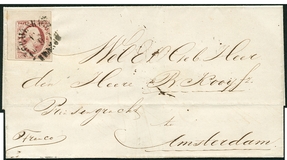 Wel Ed Geb Heer
den Heere B Kooy
Prinsengracht
te
Franco
Amsterdam